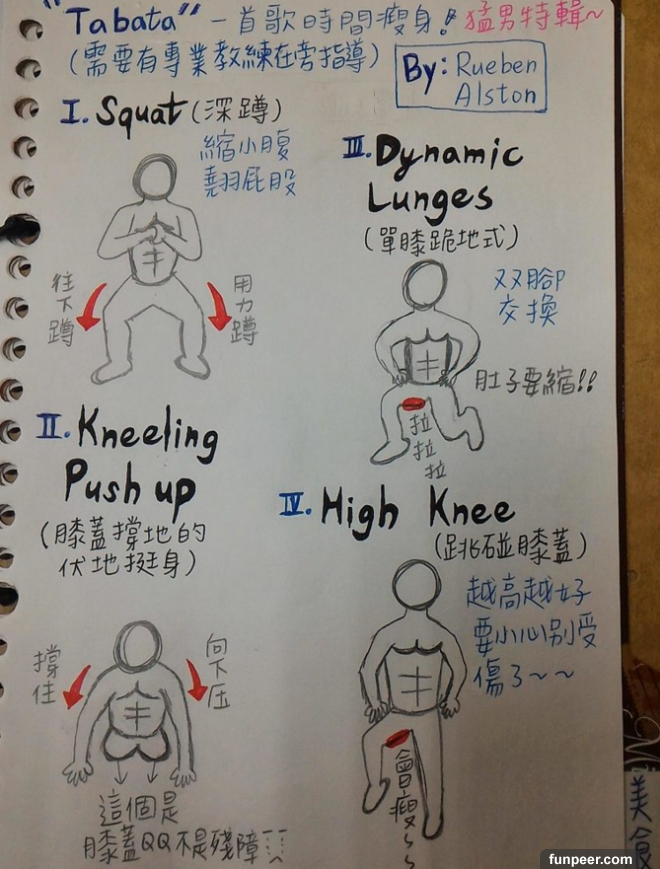 "Tabata" 一首歌時間瘦身! 猛男特輯~
(需要有專業教練在旁指導)
By: Rueben
Alston
I. Squat (深蹲)
縮小腹
翹屁股
往下蹲
用力蹲
II. Kneeling
Push up
(膝蓋撐地的
伏地挺身)
撐住
向下压
這個是
膝蓋QQ不是殘障
III. Dynamic
Lunges
(單膝跪地式)
双腳
交換
肚子要縮!!
拉
拉
拉
IV. High Knee
(跳碰膝蓋)
越高越好
要小心別受
傷了~~
會瘦~~
美食
funpeer.com